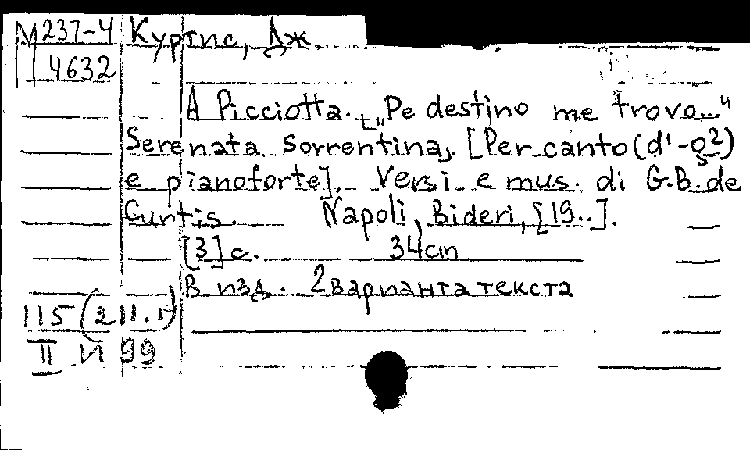 М 237-4 Куртис, Дж.
4632
A Picciotta. [„Pe destino me trovo..."
Serenata Sorrentina]. [Per canto (d¹-g²)
e pianoforte]. Versi e mus. di G.B. de
Curtis. Napoli, Bideri, [19..].
[3] с. 34 cm
В изд. 2 варианта текста
115 (211.1)
II И 99